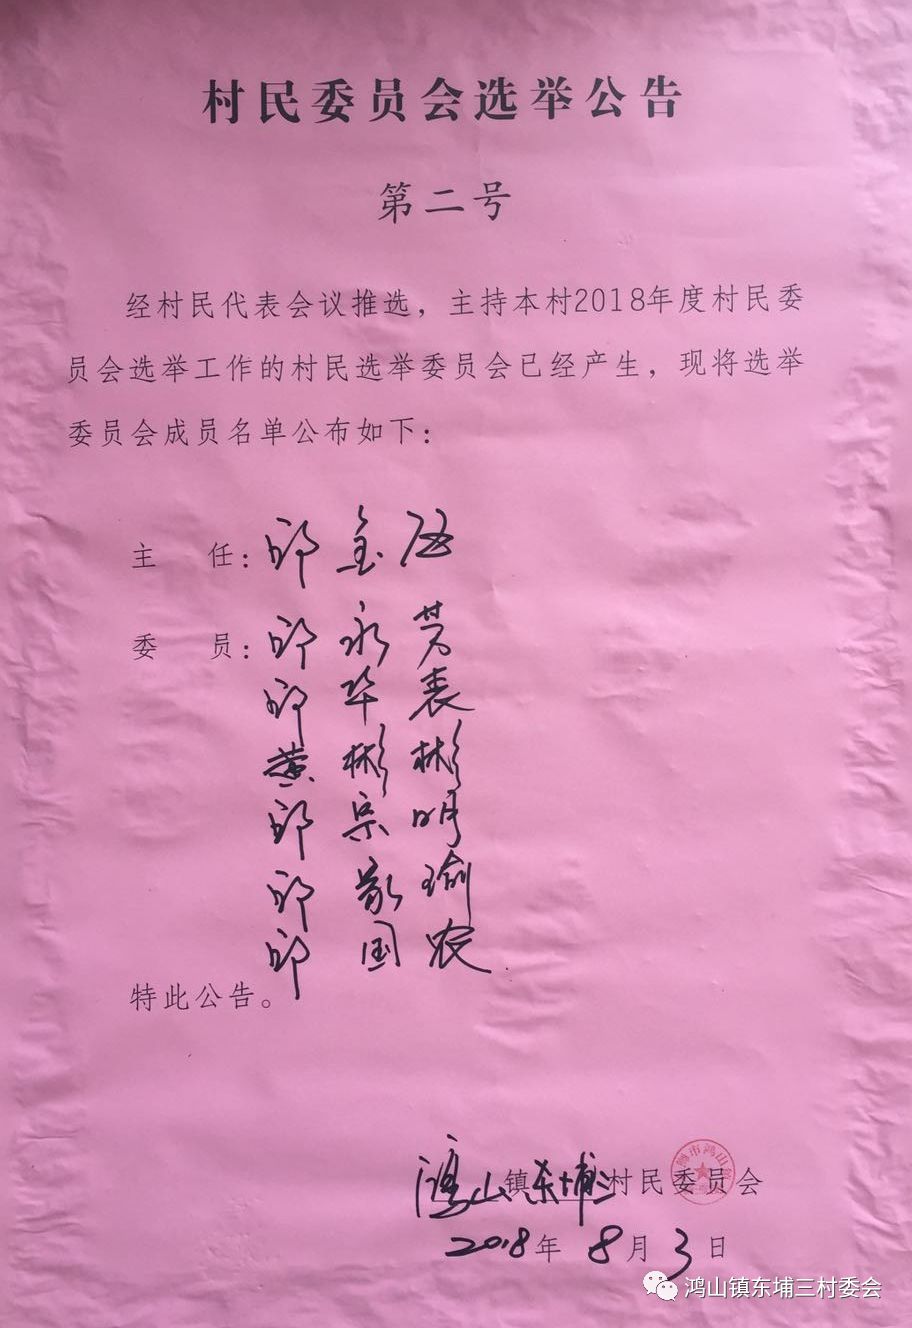 村民委员会选举公告
第二号
经村民代表会议推选，主持本村2018年度村民委
员会选举工作的村民选举委员会已经产生，现将选举
委员会成员名单公布如下：
主 任：邱金
委 员：邱永
邱华表
黄彬彬
邱宗明
邱家瑜
邱国农
特此公告。
鸿山镇东埔三村民委员会
2018年8月3日
鸿山镇东埔三村委会